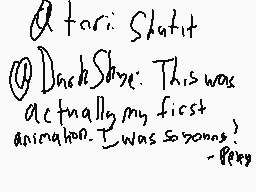 @tari: Shut it
@DarkSkye: This was
actually my first
animation. I was so young!